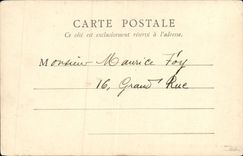 CARTE POSTALE
Ce côté est exclusivement réservé à l'adresse.
Monsieur Maurice Foy
16, Grand' Rue